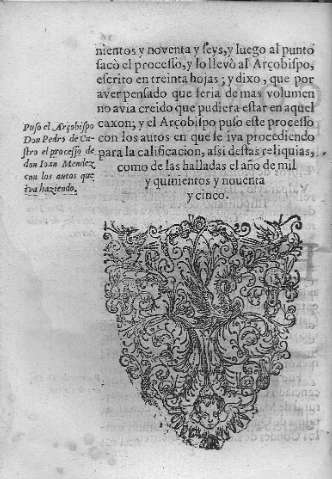 nientos y noventa y seys, y luego al punto
sacò el processo, y lo llevò al Arçobispo,
escrito en treinta hojas; y dixo, que por
aver pensado que seria de mas volumen
no avia creido que pudiera estar en aquel
caxon; y el Arçobispo puso este processo
con los autos en que se iva procediendo
para la calificacion, assi destas reliquias,
como de las halladas el año de mil
y quinientos y noventa
y cinco.
Puso el Arçobispo
Don Pedro de Ca-
stro el processo de
don Ioan Mendez
con los autos que
iva haziendo.